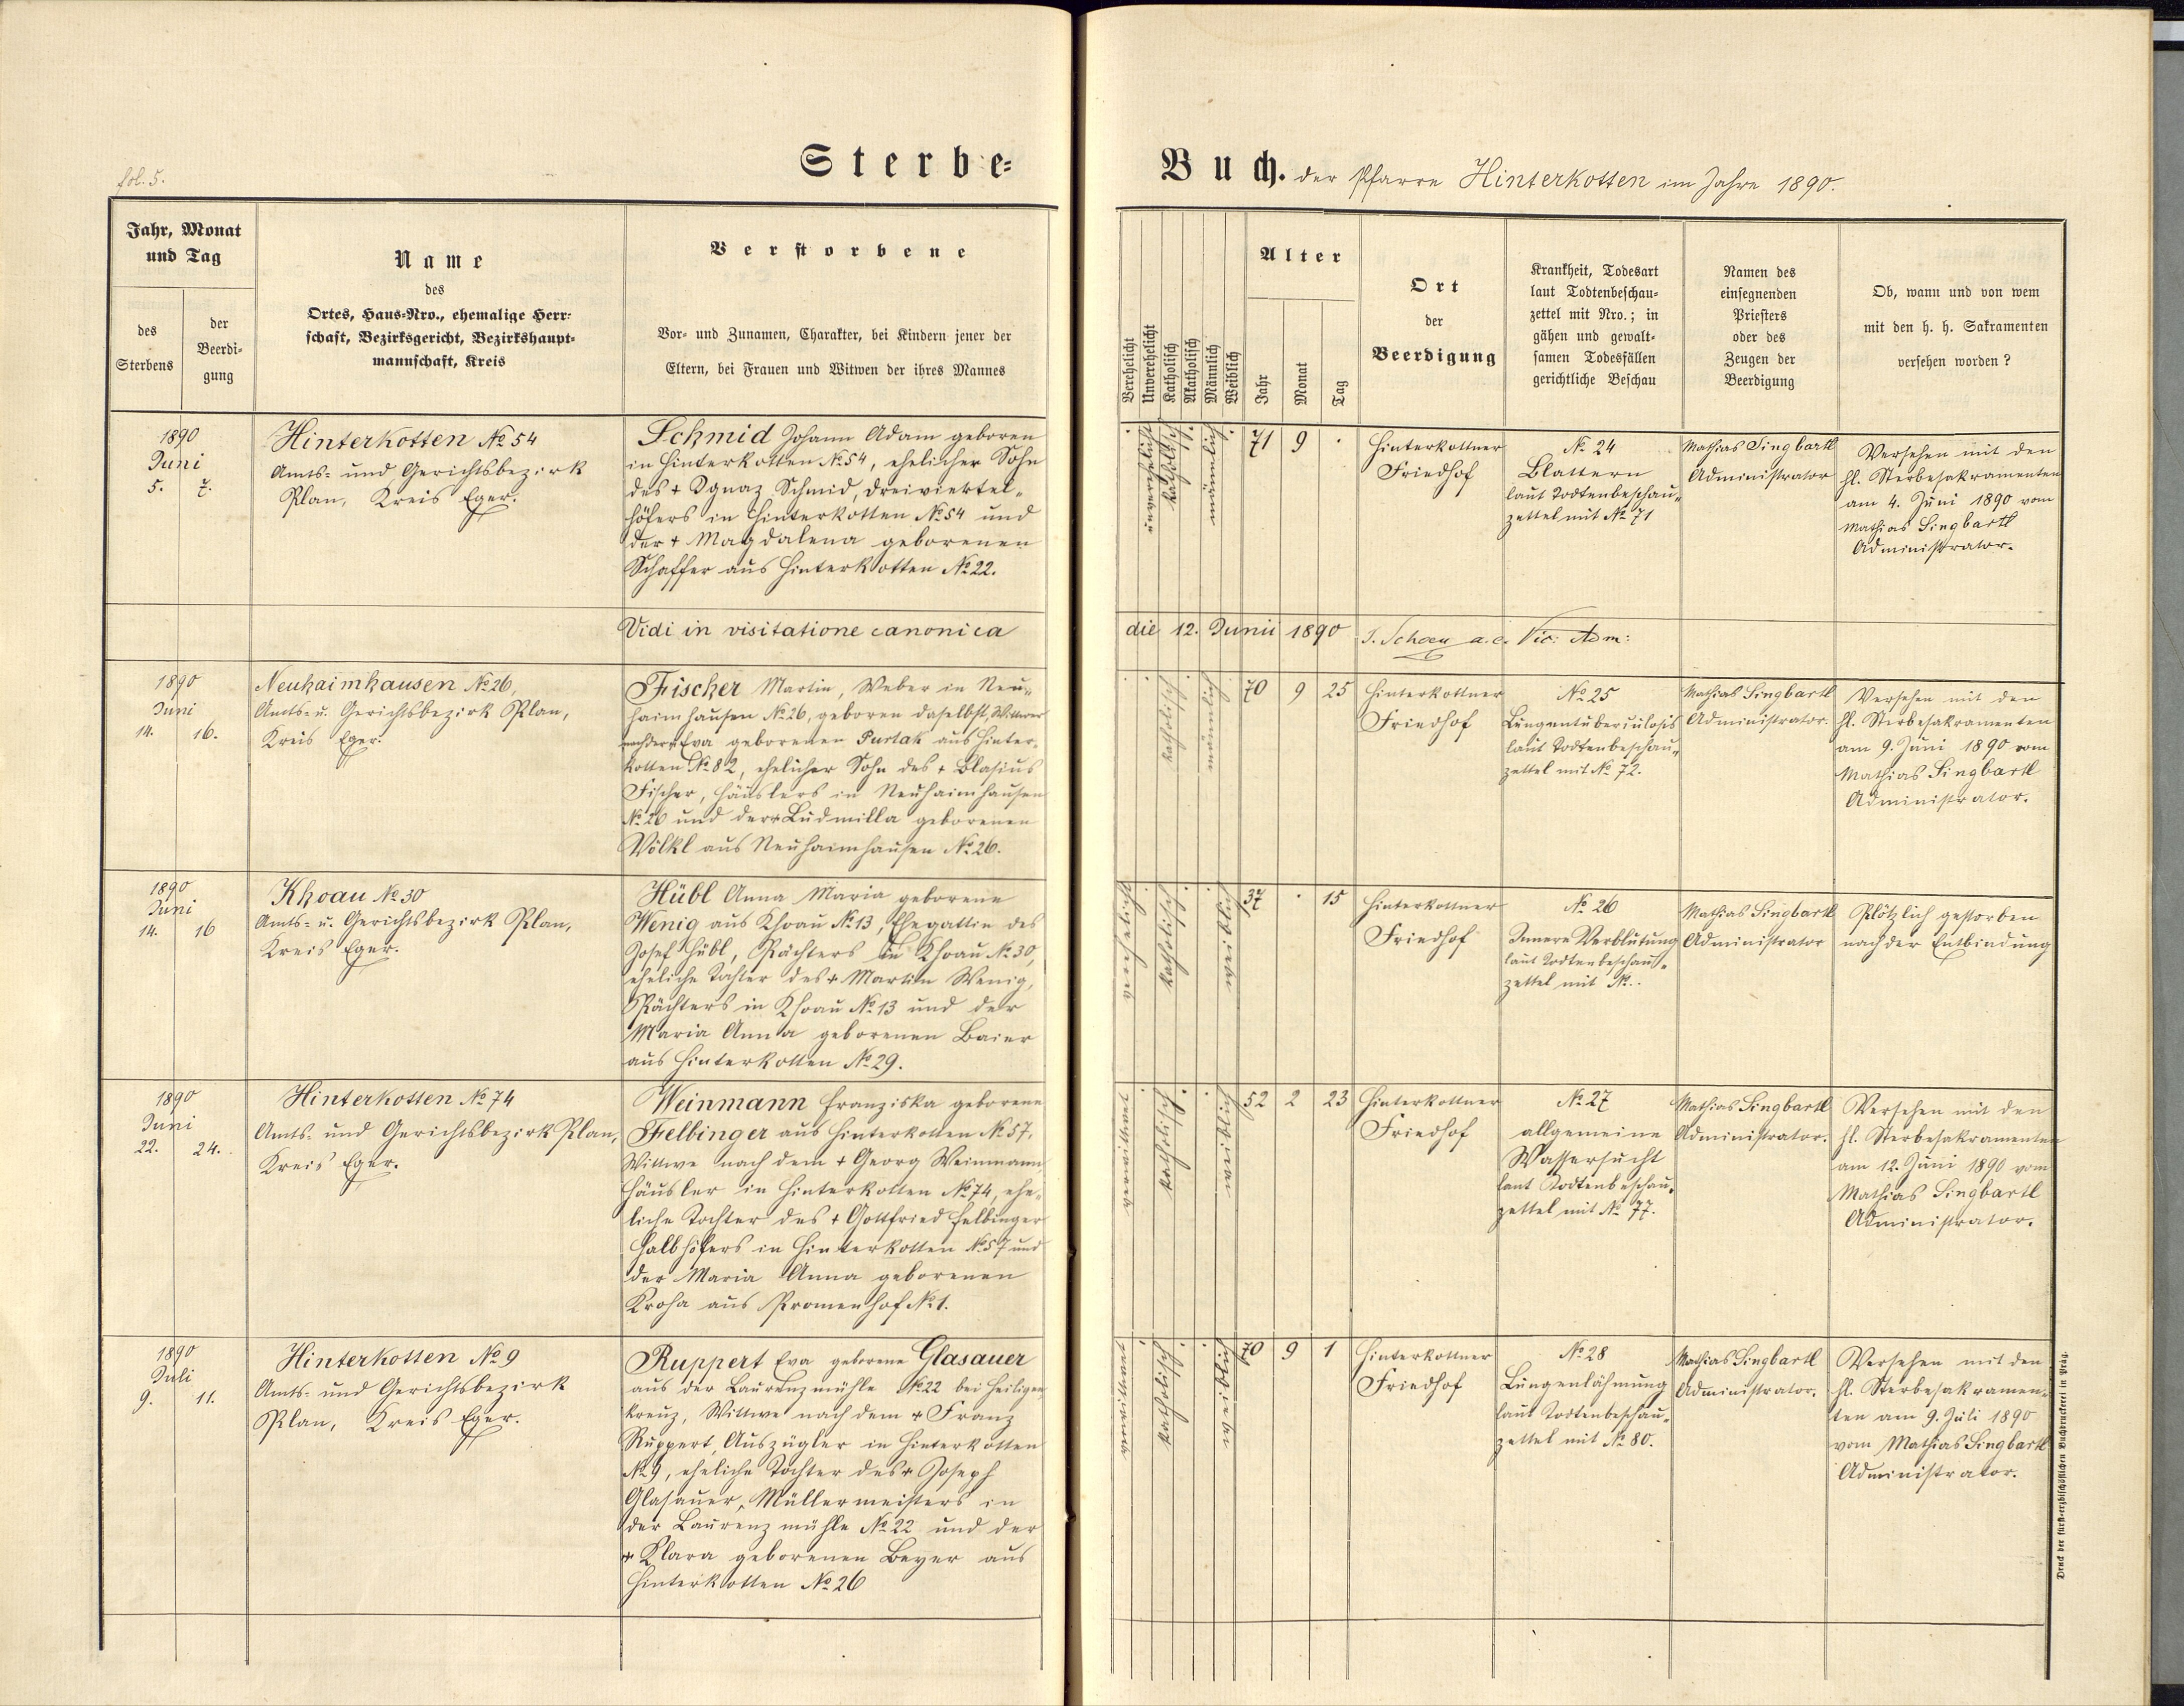 fol. 5.
Sterbe-
Buch. der Pfarre Hinterkotten im Jahre 1890.
Jahr, Monat
und Tag
des
Sterbens
der
Beerdi-
gung
Name
des
Ortes, Haus-Nro., ehemalige Herr-
schaft, Bezirksgericht, Bezirkshaupt-
mannschaft, Kreis
Verstorbene
Vor- und Zunamen, Charakter, bei Kindern jener der
Eltern, bei Frauen und Witwen der ihres Mannes
Verehelicht
Unverehelicht
Katholisch
Akatholisch
Männlich
Weiblich
Alter
Jahr
Monat
Tag
Ort
der
Beerdigung
Krankheit, Todesart
laut Todtenbeschau-
zettel mit Nro.; in
gähen und gewalt-
samen Todesfällen
gerichtliche Beschau
Namen des
einsegnenden
Priesters
oder des
Zeugen der
Beerdigung
Ob, wann und von wem
mit den h. h. Sakramenten
versehen worden?
1890
Juni
5. 7.
Hinterkotten No 54
Amts- und Gerichtsbezirk
Plan, Kreis Eger.
Schmid Johann Adam geboren
in Hinterkotten No 54, ehelicher Sohn
des + Ignaz Schmid, Dreiviertel-
höfers in Hinterkotten No 54 und
der + Magdalena geborenen
Schaffer aus Hinterkotten No 22.
unverehelicht
katholisch
männlich
71 9 .
Hinterkottner
Friedhof
No 24
Blattern
laut Todtenbeschau-
zettel mit No 71
Mathias Singbartl
Administrator
Versehen mit den
hl. Sterbesakramenten
am 4. Juni 1890 vom
Mathias Singbartl
Administrator.
Vidi in visitatione canonica
die 12. Junii 1890 J. Schoen a.c. Vic: Adm:
1890
Juni
14. 16.
Neuhaimhausen No 26,
Amts- u. Gerichtsbezirk Plan,
Kreis Eger.
Fischer Martin, Weber in Neu-
haimhausen No 26, geboren daselbst, Wittwer
nach der + Eva geborenen Purtak aus Hinter-
kotten No 82, ehelicher Sohn des + Blasius
Fischer, Häuslers in Neuhaimhausen
No 26 und der + Ludmilla geborenen
Völkl aus Neuhaimhausen No 26.
katholisch
männlich
70 9 25
Hinterkottner
Friedhof
No 25
Lungentuberculosis
laut Todtenbeschau-
zettel mit No 72.
Mathias Singbartl
Administrator.
Versehen mit den
hl. Sterbesakramenten
am 9. Juni 1890 vom
Mathias Singbartl
Administrator.
1890
Juni
14. 16
Khoau No 30
Amts- u. Gerichtsbezirk Plan,
Kreis Eger.
Hübl Anna Maria geborene
Wenig aus Khoau No 13, Ehegattin des
Josef Hübl, Pächters in Khoau No 30,
eheliche Tochter des + Martin Wenig,
Pächters in Khoau No 13 und der
Maria Anna geborenen Baier
aus Hinterkotten No 29.
verehelicht
katholisch
weiblich
37 . 15
Hinterkottner
Friedhof
No 26
Innere Verblutung
laut Todtenbeschau-
zettel mit No..
Mathias Singbartl
Administrator
Plötzlich gestorben
nach der Entbindung
1890
Juni
22. 24.
Hinterkotten No 74
Amts- und Gerichtsbezirk Plan,
Kreis Eger.
Weinmann Franziska geborene
Felbinger aus Hinterkotten No 57,
Wittwe nach dem + Georg Weinmann,
Häusler in Hinterkotten No 74, ehe-
liche Tochter des + Gottfried Felbinger
Halbhöfers in Hinterkotten No 57 und
der Maria Anna geborenen
Kroha aus Promenhof No 1.
verwittwet
katholisch
weiblich
52 2 23
Hinterkottner
Friedhof
No 27
allgemeine
Wassersucht
laut Todtenbeschau-
zettel mit No 77.
Mathias Singbartl
Administrator.
Versehen mit den
hl. Sterbesakramenten
am 12. Juni 1890 vom
Mathias Singbartl
Administrator.
1890
Juli
9. 11.
Hinterkotten No 9
Amts- und Gerichtsbezirk
Plan, Kreis Eger.
Ruppert Eva geborene Glasauer
aus der Laurenzmühle No 22 bei Heiligen-
kreuz, Wittwe nach dem + Franz
Ruppert, Auszügler in Hinterkotten
No 9, eheliche Tochter des + Joseph
Glasauer, Müllermeisters in
der Laurenzmühle No 22 und der
+ Klara geborenen Beyer aus
Hinterkotten No 26
verwittwet
katholisch
weiblich
70 9 1
Hinterkottner
Friedhof
No 28
Lungenlähmung
laut Todtenbeschau-
zettel mit No 80.
Mathias Singbartl
Administrator.
Versehen mit den
hl. Sterbesakramen-
ten am 9. Juli 1890
vom Mathias Singbartl
Administrator.
Druck der fürst-erzbischöflichen Buchdruckerei in Prag.